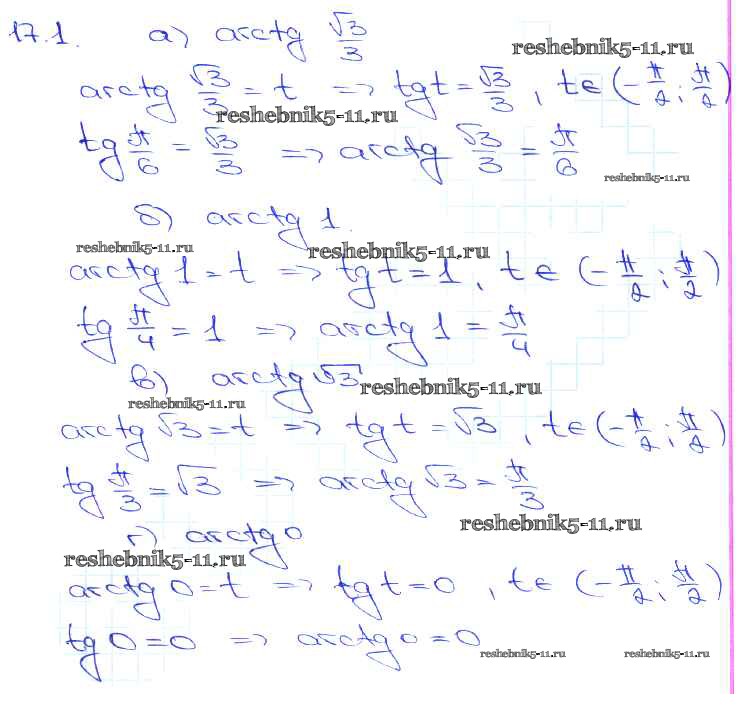 17.1. а) arctg √3/3
reshebnik5-11.ru
arctg √3/3 = t => tg t = √3/3, t ∈ (-π/2; π/2)
reshebnik5-11.ru
tg π/6 = √3/3 => arctg √3/3 = π/6
reshebnik5-11.ru
б) arctg 1.
reshebnik5-11.ru reshebnik5-11.ru
arctg 1 = t => tg t = 1, t ∈ (-π/2; π/2)
tg π/4 = 1 => arctg 1 = π/4
в) arctg √3
reshebnik5-11.ru
reshebnik5-11.ru
arctg √3 = t => tg t = √3, t ∈ (-π/2; π/2)
tg π/3 = √3 => arctg √3 = π/3
reshebnik5-11.ru
г) arctg 0
reshebnik5-11.ru
arctg 0 = t => tg t = 0, t ∈ (-π/2; π/2)
tg 0 = 0 => arctg 0 = 0
reshebnik5-11.ru reshebnik5-11.ru